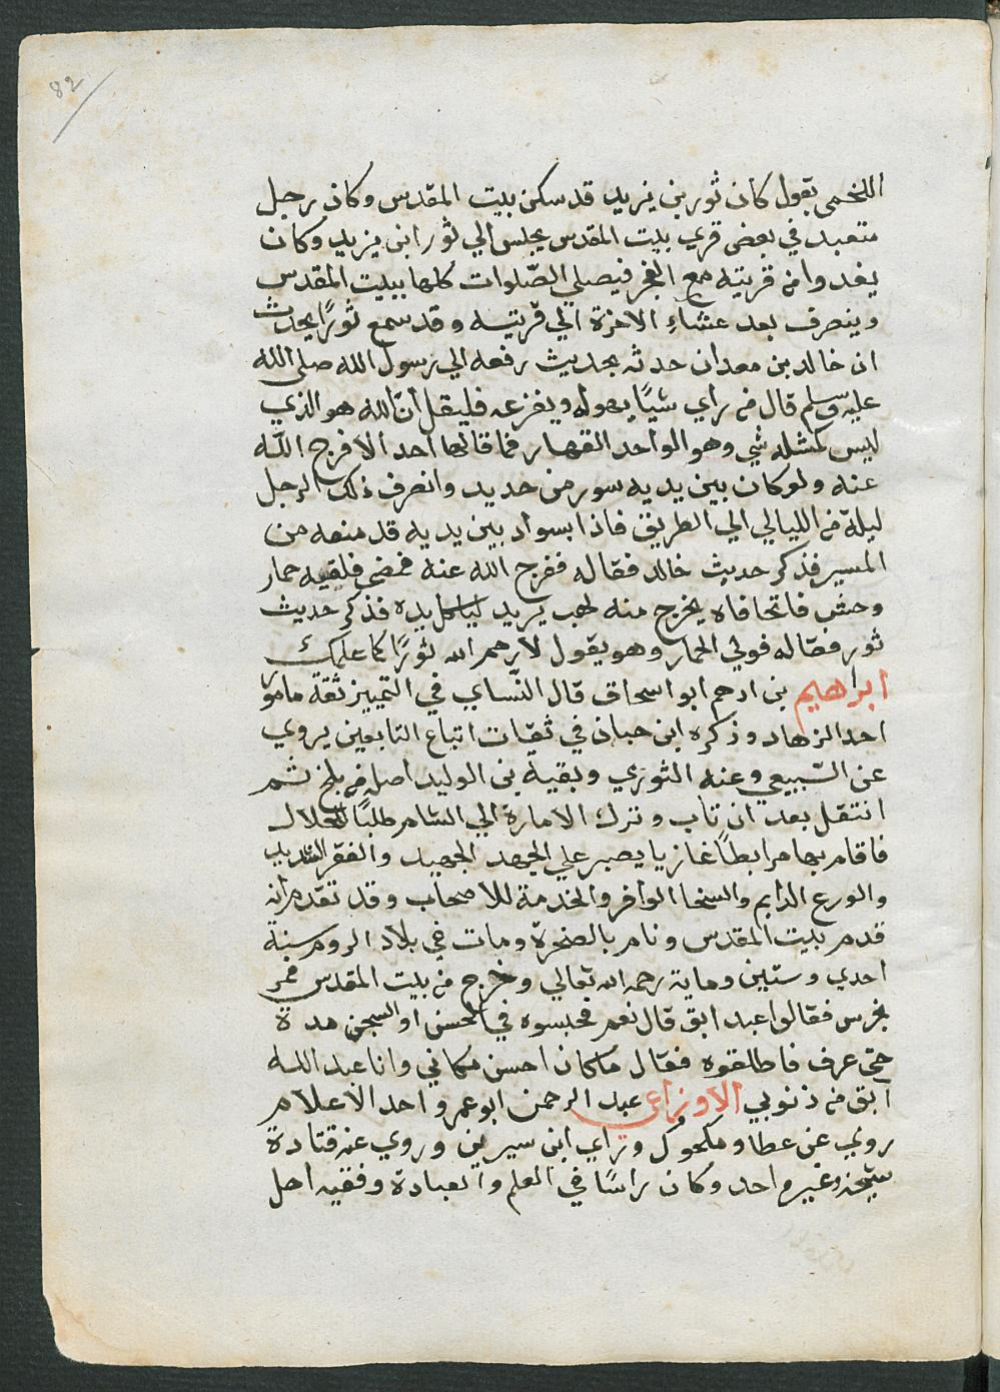 82
اللخمى يقول كان ثور بن يزيد قد سكن بيت المقدس وكان رجل
متعبد في بعض قري بيت المقدس يجلس الي ثور ابن يزيد وكان
يغدوا من قريته مع الفجر فيصلي الصّلوات كلها ببيت المقدس
وينصرف بعد عشاءِ الاخرة الي قريته وقد سمع ثورًا يحدث
ان خالد بن معدان حدثه بحديث رفعه الي رسول الله صلى الله
عليه وسلم قال من راي شيًا يهوله ويفزعه فليقل انّ الله هو الذي
ليس كمثله شي وهو الواحد القهار فما قالها احد الا فرج الله
عنه ولو كان بين يديه سور من حديد وانصرف ذلك الرجل
ليلة من الليالي الي الطريق فاذا بسواد بين يديه قد منعه من
المسير فذكر حديث خالد فقاله ففرج الله عنه فمضى فلقيه حمار
وحش فاتحا فاه يخرج منه لهب يريد لياكل يده فذكر حديث
ثور فقاله فولي الحمار وهو يقول لا رحم الله ثورًا كما علمك
ابراهيم بن ادهم ابو اسحاق قال النّساي في التمييز ثقة مامون
احد الزهاد وذكره ابن حبان في ثقات اتباع التابعين يروي
عن السّبيعي وعنه الثوري وبقية بن الوليد اصله من بلخ ثم
انتقل بعد ان تاب وترك الامارة الي الشام طلبًا للحلال
فاقام بها مرابطًا غازيا يصبر علي الجهد الجهيد والفقر الشديد
والورع الدايم والسخا الوافر والخدمة للاصحاب وقد تقدم انه
قدم بيت المقدس ونام بالصخرة ومات في بلاد الروم سنة
احدي وستين وماية رحمه الله تعالي وخرج من بيت المقدس فمر
بحرس فقالوا عبد ابق قال نعم فحبسوه في الحسن او السجن مدة
حتى عرف فاطلقوه فقال ماكان احسن مكاني وانا عبد الله
ابق من ذنوبي الاوزاعى عبد الرحمن ابو عمرو احد الاعلام
روي عن عطا ومكحوك وراي ابن سيرين وروي عنه قتادة
شيخه وغير واحد وكان راسًا في العلم والعبادة وفقيه اهل